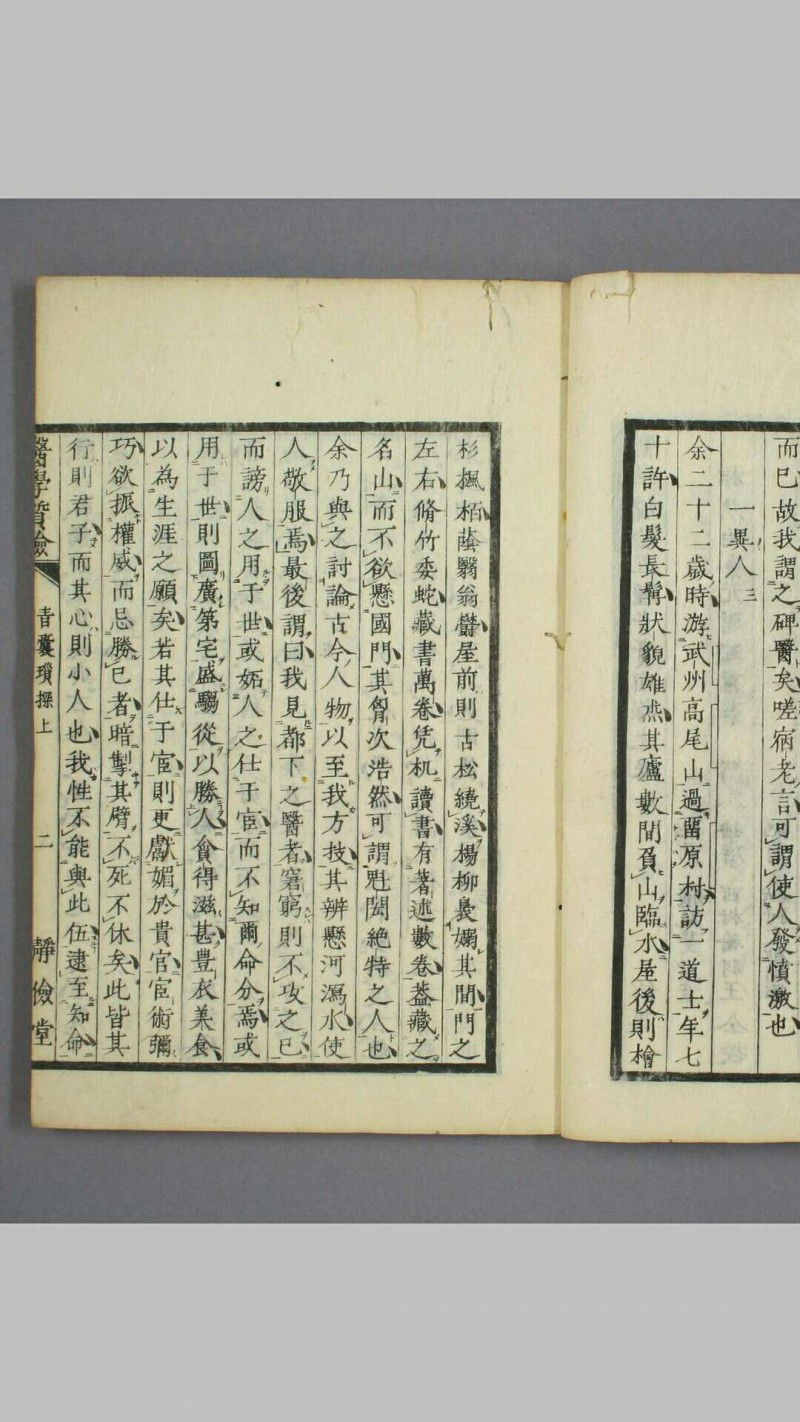 而已故我謂之碑醫矣嗟病老言可謂使人發憤激也
一異人三
余二十二歲時游武州高尾山過留原村訪一道士年七
十許白髮長髯狀貌雄㷼其廬數間負山臨水屋後則檜
杉楓栢蔭翳翁欝屋前則古松繞溪楊柳裊嫋其間門之
左右脩竹委蛇藏書萬卷凭机讀書有著述數卷盖藏之
名山而不欲懸國門其胷次浩然可謂魁閎絶特之人也
余乃與之討論古今人物以至我方技其辨懸河瀉水使
人敬服焉最後謂曰我見都下之醫者窘窮則不攻之已
而謗人之用于世或妬人之仕于官而不知爾命分焉或
用于世則圖廣第宅盛騶從以勝人食得滋甚豊衣美食
以為生涯之願矣若其仕于宦則更獻媚於貴官宦術彌
巧欲振權威而忌勝己者暗掣其臂不死不休矣此皆其
行則君子而其心則小人也我性不能與此伍逮至知命
醫學質驗 青囊瑣探上 二 靜儉堂